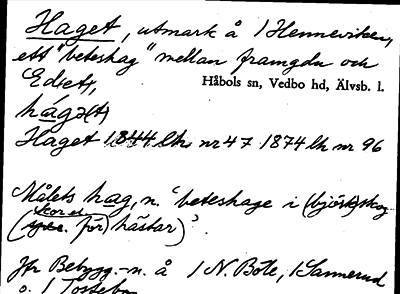 Haget, utmark å 1 Henneviken,
ett "beteshag" mellan framgdn och
Edet,
Håbols sn, Vedbo hd, Älvsb. l.
hágə(t)
Haget 1844 lk nr 47 1874 lk nr 96
Målets hag, n. 'beteshage i (björk)skog
kor el.
( för hästar)'.
Jfr Bebygg.-n. å 1 N. Böle, 1 Sannerud
o. 1 Tossebo